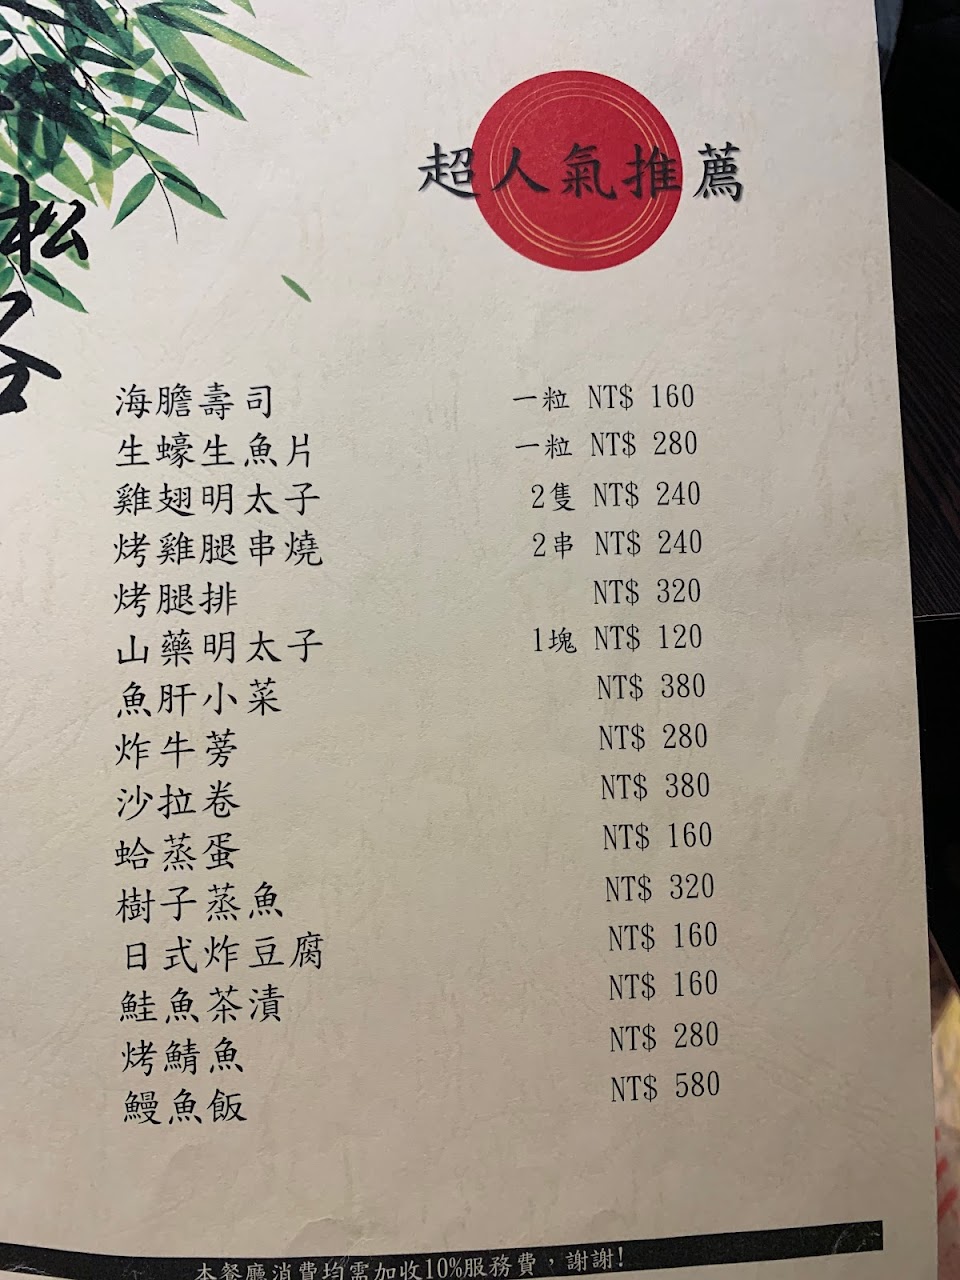 超人氣推薦
松
海膽壽司 一粒 NT$ 160
生蠔生魚片 一粒 NT$ 280
雞翅明太子 2隻 NT$ 240
烤雞腿串燒 2串 NT$ 240
烤腿排 NT$ 320
山藥明太子 1塊 NT$ 120
魚肝小菜 NT$ 380
炸牛蒡 NT$ 280
沙拉卷 NT$ 380
蛤蒸蛋 NT$ 160
樹子蒸魚 NT$ 320
日式炸豆腐 NT$ 160
鮭魚茶漬 NT$ 160
烤鯖魚 NT$ 280
鰻魚飯 NT$ 580
本餐廳消費均需加收10%服務費，謝謝!